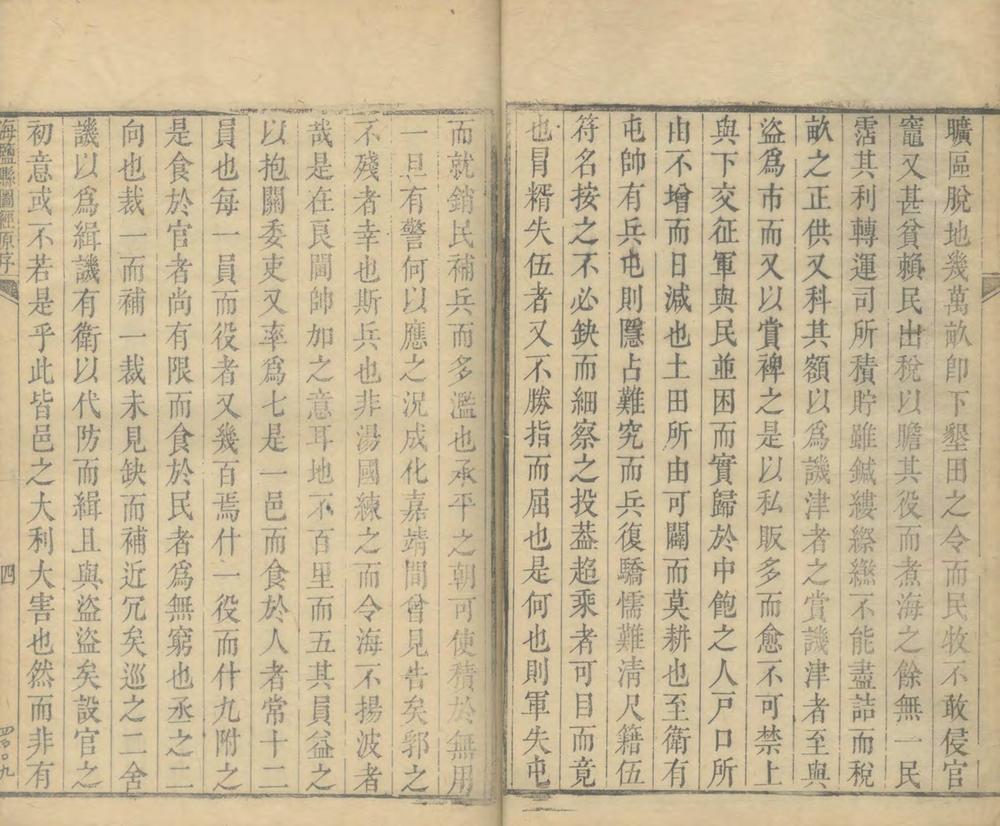 曠區脫地幾萬畝卽下墾田之令而民牧不敢侵官
竈又甚貧賴民出稅以贍其役而煮海之餘無一民
霑其利轉運司所積貯雖鍼縷繠繺不能盡詰而稅
畝之正供又科其額以爲譏津者之賞譏津者至與
盜爲市而又以賞裨之是以私販多而愈不可禁上
與下交征軍與民並困而實歸於中飽之人戸口所
由不增而日減也土田所由可闢而莫耕也至衛有
屯帥有兵屯則隱占難究而兵復驕懦難淸尺籍伍
符名按之不必缺而細察之投葢超乘者可目而竟
也冒糈失伍者又不勝指而屈也是何也則軍失屯
而就銷民補兵而多濫也承平之朝可使積於無用
一旦有警何以應之況成化嘉靖閒曾見告矣郭之
不殘者幸也斯兵也非湯國練之而令海不揚波者
哉是在良閫帥加之意耳地不百里而五其員益之
以抱關委吏又率爲七是一邑而食於人者常十二
員也每一員而役者又幾百焉什一役而什九附之
是食於官者尚有限而食於民者爲無窮也丞之二
向也裁一而補一裁未見缺而補近冗矣巡之二舍
譏以爲緝譏有衛以代防而緝且與盜盜矣設官之
初意或不若是乎此皆邑之大利大害也然而非有
海鹽縣圖經原序
四